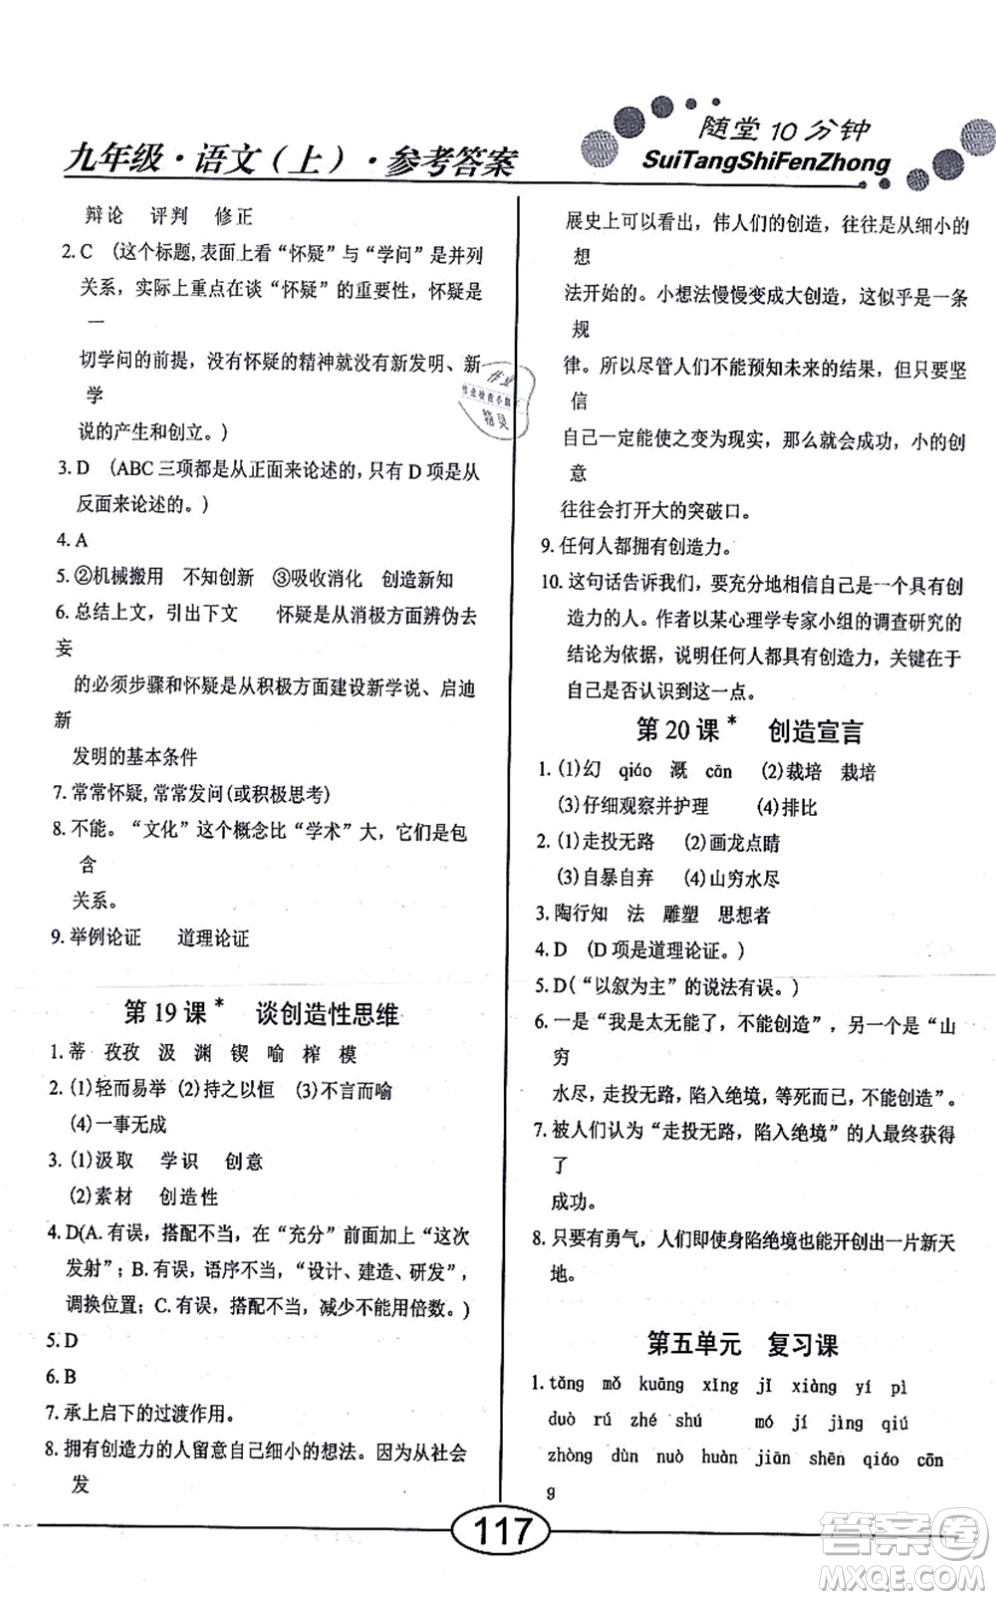 九年级·语文(上)·参考答案
随堂10分钟
SuiTangShiFenZhong
辩论 评判 修正
2. C (这个标题,表面上看“怀疑”与“学问”是并列
关系，实际上重点在谈“怀疑”的重要性，怀疑是
一
切学问的前提，没有怀疑的精神就没有新发明、新
学
说的产生和创立。)
3. D (ABC 三项都是从正面来论述的,只有 D 项是从
反面来论述的。)
4. A
5. ②机械搬用 不知创新 ③吸收消化 创造新知
6. 总结上文，引出下文 怀疑是从消极方面辨伪去
妄
的必须步骤和怀疑是从积极方面建设新学说、启迪
新
发明的基本条件
7. 常常怀疑,常常发问(或积极思考)
8. 不能。“文化”这个概念比“学术”大，它们是包
含
关系。
9. 举例论证 道理论证
第 19 课* 谈创造性思维
1. 蒂 孜孜 汲 渊 锲 喻 榨 模
2. (1)轻而易举 (2)持之以恒 (3)不言而喻
(4)一事无成
3. (1)汲取 学识 创意
(2)素材 创造性
4. D(A. 有误，搭配不当，在“充分”前面加上“这次
发射”；B. 有误，语序不当，“设计、建造、研发”，
调换位置；C. 有误，搭配不当，减少不能用倍数。)
5. D
6. B
7. 承上启下的过渡作用。
8. 拥有创造力的人留意自己细小的想法。因为从社会
发
展史上可以看出，伟人们的创造，往往是从细小的
想
法开始的。小想法慢慢变成大创造，这似乎是一条
规
律。所以尽管人们不能预知未来的结果，但只要坚
信
自己一定能使之变为现实，那么就会成功，小的创
意
往往会打开大的突破口。
9. 任何人都拥有创造力。
10. 这句话告诉我们，要充分地相信自己是一个具有创
造力的人。作者以某心理学专家小组的调查研究的
结论为依据，说明任何人都具有创造力，关键在于
自己是否认识到这一点。
第 20 课* 创造宣言
1. (1)幻 qiáo 溉 cān (2)栽培 栽培
(3)仔细观察并护理 (4)排比
2. (1)走投无路 (2)画龙点睛
(3)自暴自弃 (4)山穷水尽
3. 陶行知 法 雕塑 思想者
4. D (D 项是道理论证。)
5. D(“以叙为主”的说法有误。)
6. 一是“我是太无能了，不能创造”，另一个是“山
穷
水尽，走投无路，陷入绝境，等死而已，不能创造”。
7. 被人们认为“走投无路，陷入绝境”的人最终获得
了
成功。
8. 只要有勇气，人们即使身陷绝境也能开创出一片新天
地。
第五单元 复习课
1. tǎng mǒ kuāng xīng jǐ xiàng yí pì
duò rú zhé shú mó jí jìng qiú
zhòng dùn nuò huàn jiān shēn qiáo cōn
g
117
答案圈
MXQE.COM